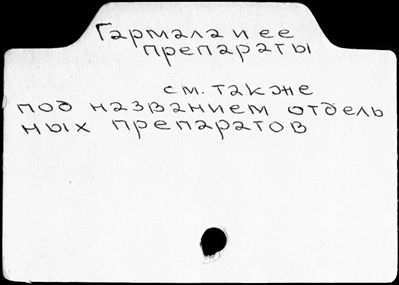 Гармала и ее
препараты
см. также
под названием отдель
ных препаратов